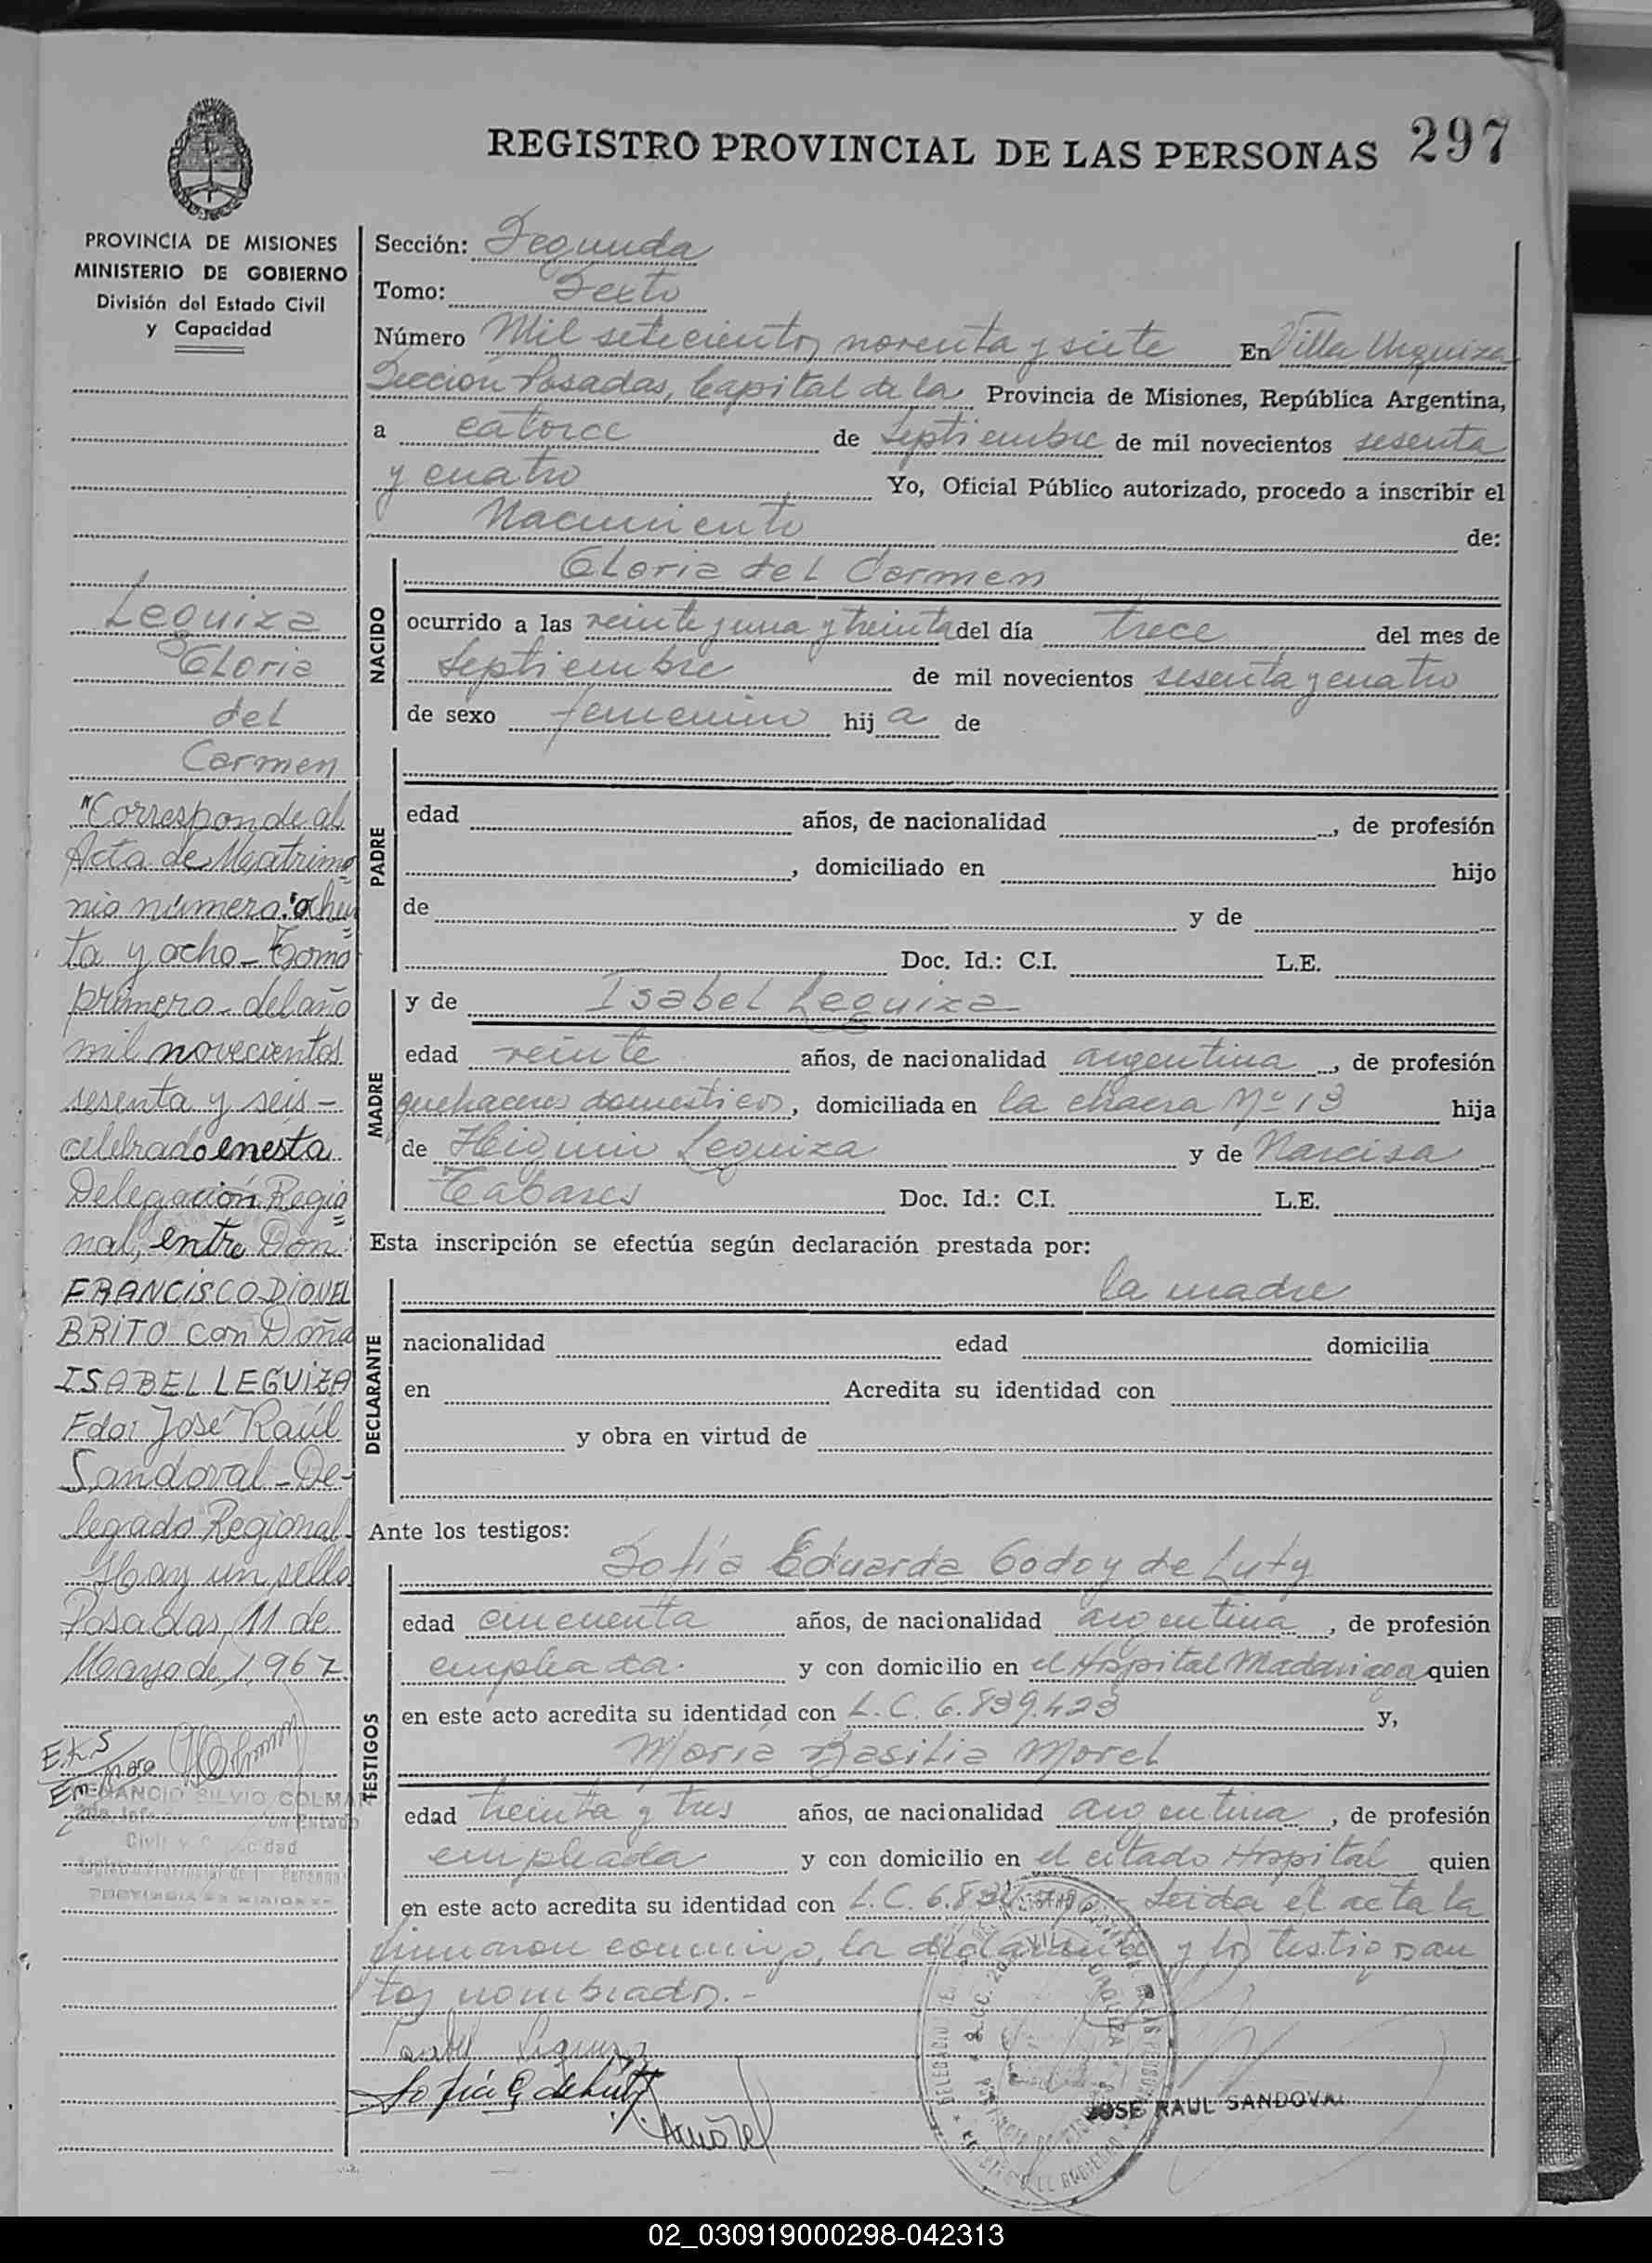 REGISTRO PROVINCIAL DE LAS PERSONAS 297
PROVINCIA DE MISIONES
MINISTERIO DE GOBIERNO
División del Estado Civil
y Capacidad
Leguiza
Gloria
del
Carmen
"Corresponde al
Acta de Matrimo
nio número: "ochen
ta y ocho - Tomo
primero - del año
mil novecientos
sesenta y seis -
celebrado en esta
Delegación Regio
nal, entre Don
FRANCISCO DIONEL
BRITO con Doña
ISABEL LEGUIZA
Fdo: José Raúl
Sandoval - De-
legado Regional
Hay un sello
Posadas, 11 de
Marzo de 1.967
SILVIO COLMAN
Sección: Segunda
Tomo: Sexto
Número Mil setecientos noventa y siete En Villa Urquiza
Sección Posadas, Capital de la Provincia de Misiones, República Argentina,
a catorce de Septiembre de mil novecientos sesenta
y cuatro Yo, Oficial Público autorizado, procedo a inscribir el
Nacimiento de:
NACIDO
Gloria del Carmen
ocurrido a las veinte y una y treinta del día trece del mes de
Septiembre de mil novecientos sesenta y cuatro
de sexo femenino hij a de
PADRE
edad años, de nacionalidad , de profesión
, domiciliado en hijo
de y de
Doc. Id.: C.I. L.E.
MADRE
y de Isabel Leguiza
edad veinte años, de nacionalidad argentina, de profesión
quehaceres domésticos, domiciliada en la chacra Nº 13 hija
de Higinio Leguiza y de Narcisa
Tabares Doc. Id.: C.I. L.E.
Esta inscripción se efectúa según declaración prestada por:
DECLARANTE
la madre
nacionalidad edad domicilia
en Acredita su identidad con
y obra en virtud de
Ante los testigos:
TESTIGOS
Sofía Eduarda Godoy de Luty
edad cincuenta años, de nacionalidad argentina, de profesión
empleada. y con domicilio en el Hospital Madariaga quien
en este acto acredita su identidad con L.C. 6.839.423 y,
María Basilia Morel
edad treinta y tres años, de nacionalidad argentina, de profesión
empleada y con domicilio en el citado Hospital quien
en este acto acredita su identidad con L.C. Leida el acta la
firmaron conmigo, la declarante y los testigos an
tes nombrados.-
Isabel Leguiza
Sofía G de Luty
JOSE RAUL SANDOVAL
02_030919000298-042313